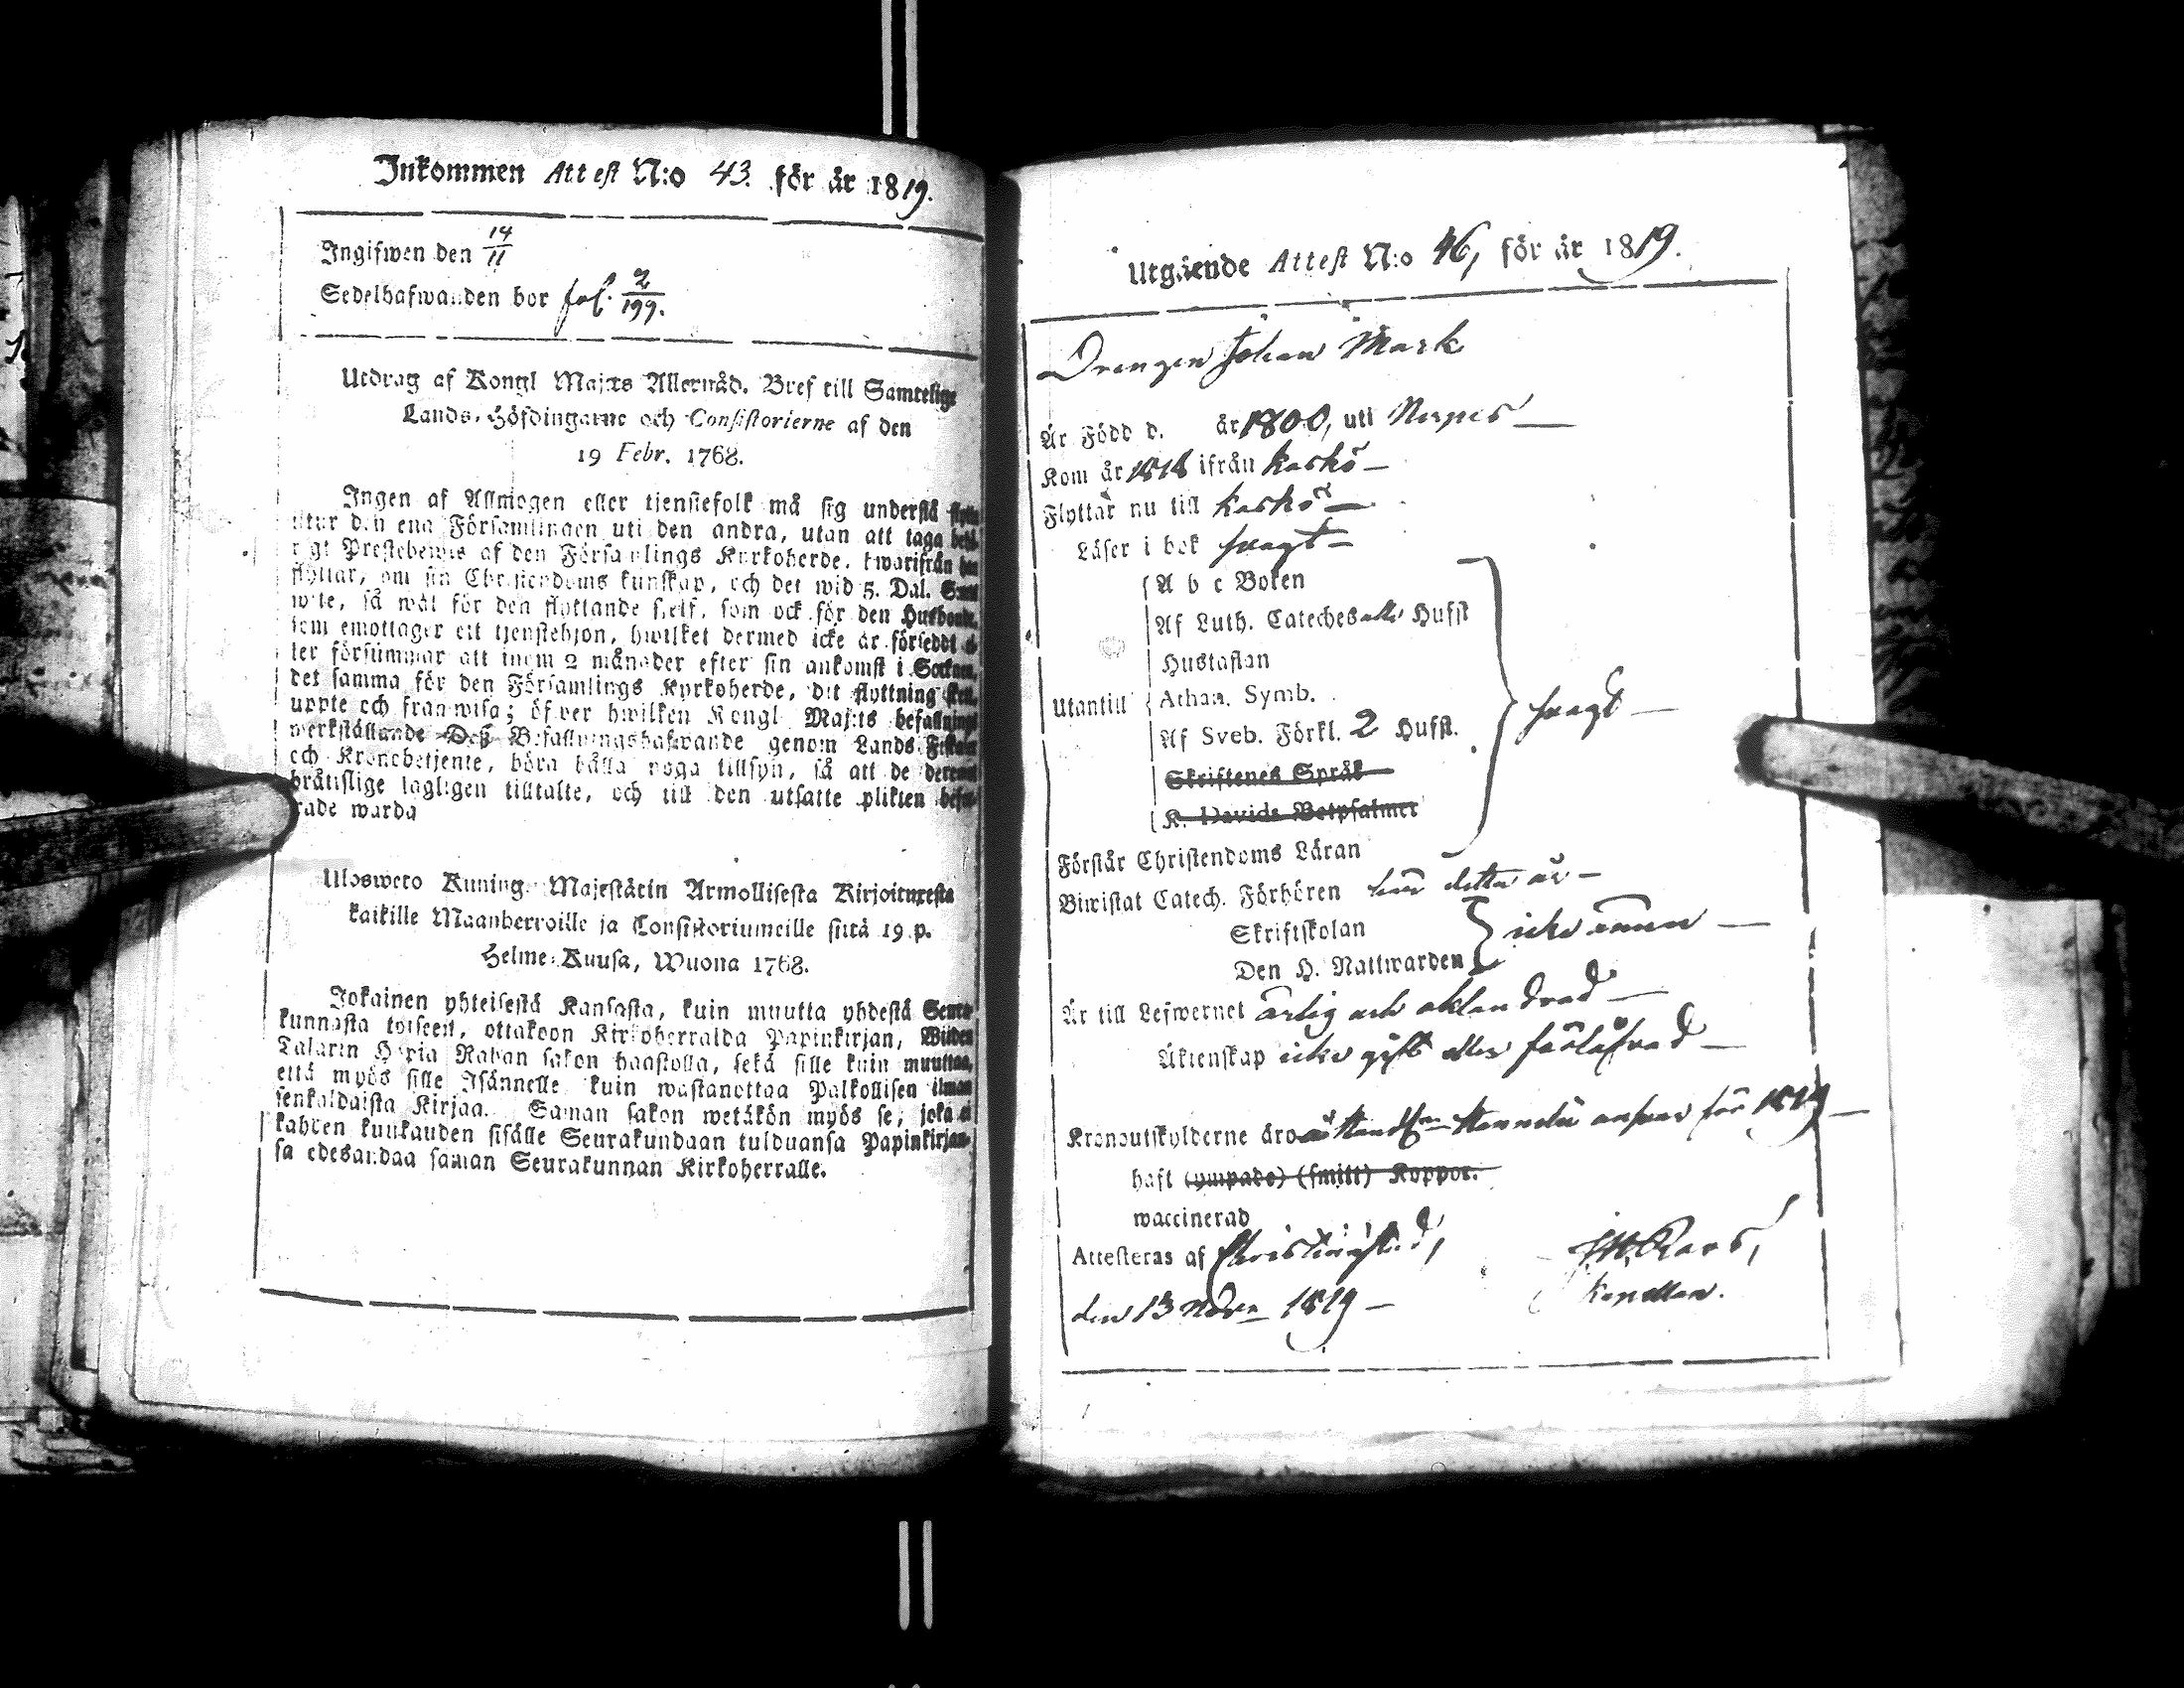 Inkommen Attest N:o 43. för år 1819.
Ingifwen den 14/11
Sedelhafwanden bor fol. 2/199.
Utdrag af Kongl Maj:ts Allernåd. Bref till Samtelige
Lands-Höfdingarne och Consistorierne af den
19 Febr. 1768.
Ingen af Allmogen eller tjenstefolk må sig understå flytta
utur den ena Församlingen uti den andra, utan att taga
Prestebewis af den Församlings Kyrkoherde, hwarifrån han
flyttar, om sin Christendoms kunskap, och det wid 5. Dal. Smt
wite, så wäl för den flyttande sjelf, som ock för den Husbonde,
som emottager ett tjenstehjon, hwilket dermed icke är försedt el-
ler försummar att inom 2 månader efter sin ankomst i Socknen,
det samma för den Församlings Kyrkoherde, dit flyttning sker,
uppte och framwisa; öfwer hwilken Kongl Maj:ts befallnings
werkställande Deß Befallningshafwande genom Lands Fiskaler
och Kronobetjente, böra hålla noga tillsyn, så att de deremot
bråtslige lagligen tilltalte, och till den utsatte plikten befor-
rade warda
Ulosweto Kuning. Majestätin Armollisesta Kirjoituxesta
kaikille Maanherroille ja Consistoriumeille siitä 19 p.
Helme-Kuusa, Wuona 1768.
Jokainen yhteisestä Kansasta, kuin muutta yhdestä Seura-
kunnasta toiseen, ottakoon Kirkoherralda Papinkirjan, Wiiden
Talarin Hopia Rahan sakon haastolla, sekä sille kuin muuttaa,
että myös sille Isännelle kuin wastanottaa Palkollisen ilman
senkaldaista Kirjaa. Saman sakon wetäkön myös se, joka ei
kahden kuukauden sisälle Seurakundaan tulduansa Papinkirjan-
sa edesandaa saman Seurakunnan Kirkoherralle.
Utgående Attest N:o 46, för år 1819.
Drengen Johan Mark
Är Född d. år 1800, uti Nerpes
Kom år 1818 ifrån Kaskö
Flyttar nu till Kaskö
Läser i bok swagt
A b c Boken
Af Luth. Cateches alla Hufst
Hustaflan
Utantill Athan. Symb.
Af Sveb. Förkl. 2 Hufst. swagt
Skriftenes Språk
K. Davids Botpsalmer
Förstår Christendoms Läran
Biwistat Catech. Förhören här detta år
Skriftskolan
Den H. Nattwarden icke ännu
Är till Lefwernet ärlig och oklandrad
Äktenskap icke gift eller förlofwad
Kronoutskylderne äro för 1819
haft (ympade) (smitt) Koppor.
waccinerad
Attesteras af Christinestad,
den 13 Novr 1819